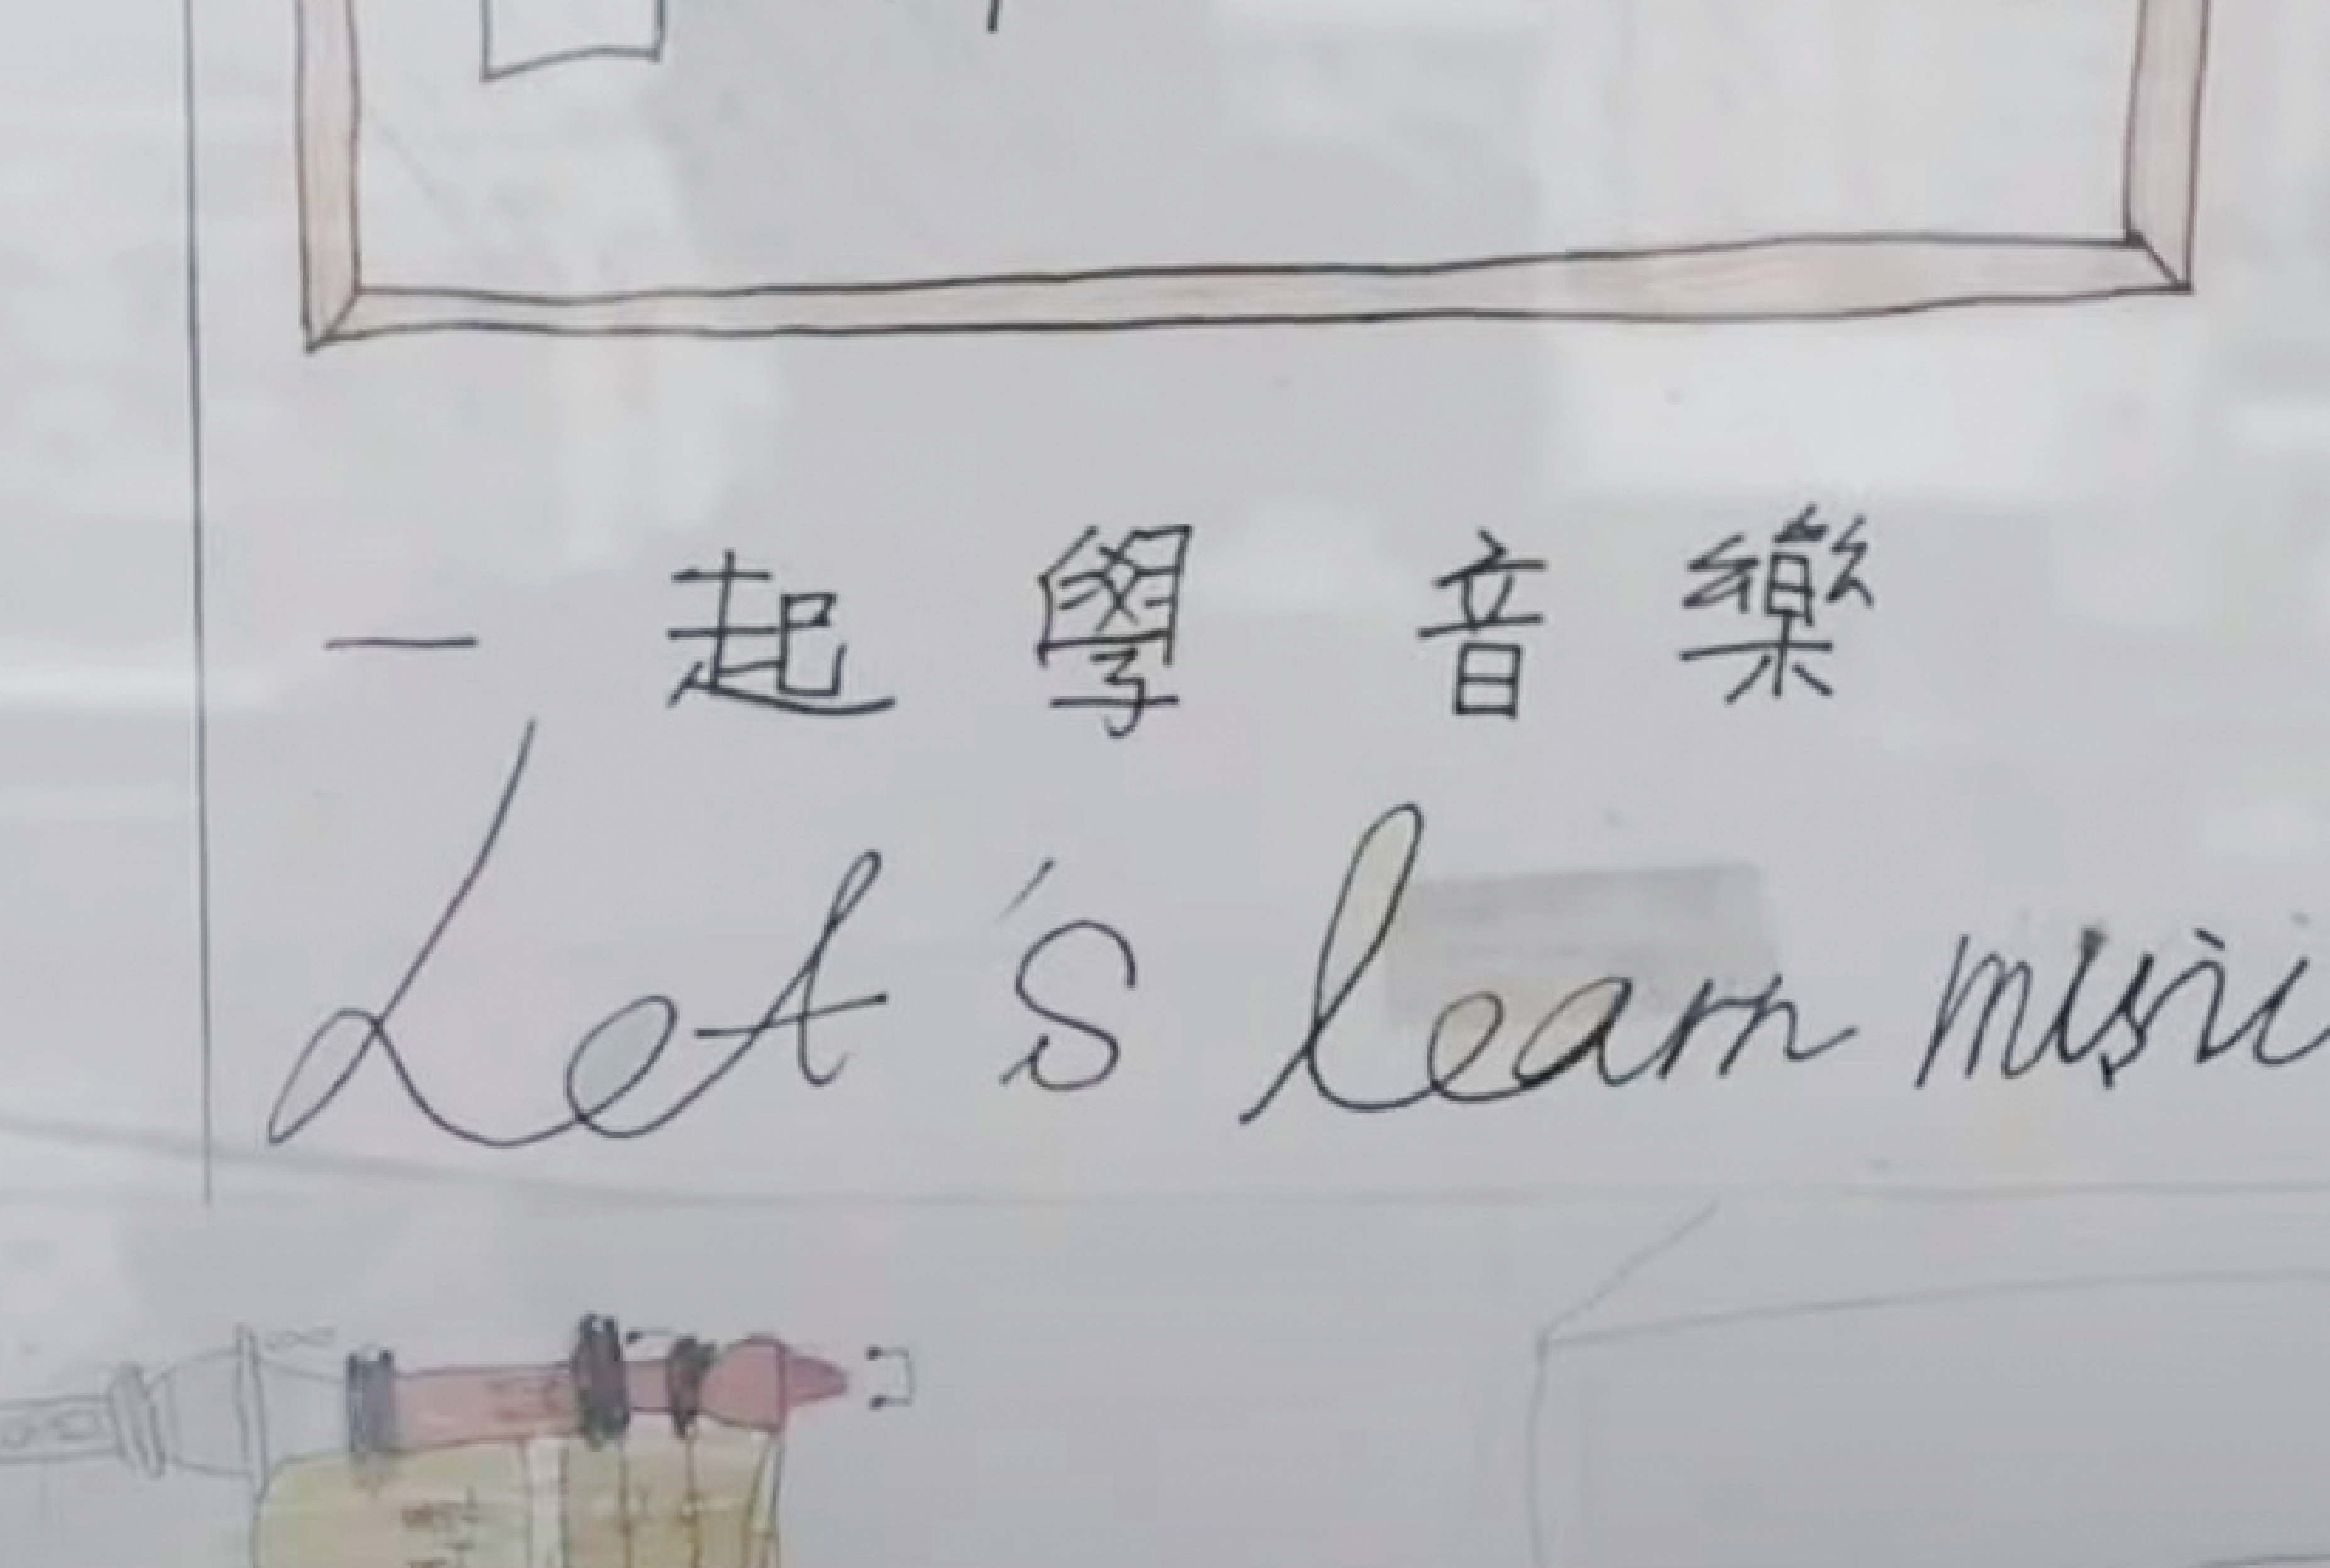 一起學音樂
Let's learn musi